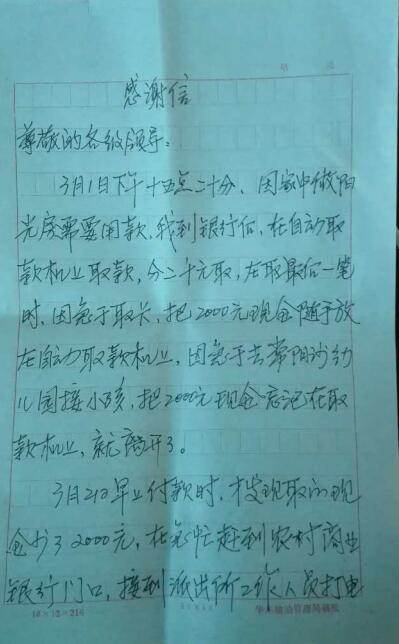 感谢信
尊敬的各级领导：
3月1日下午十五点二十分、因家中做阳
光房需要用款，我到银行后，在自动取
款机上取款，分二千元取，在取最后一笔
时，因急于取卡，把2000元现金随手放
在自动取款机上，因急于去常阳河幼
儿园接小孩，把2000元现金忘记在取
款机上，就离开了。
3月2日早上付款时，才发现取的现
金少了2000元，在急忙赶到农村商业
银行门口，接到派出所工作人员打电
16×12=216